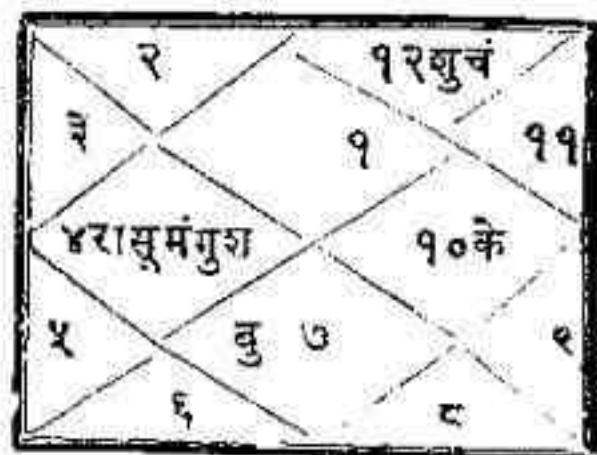 २ १२शुचं
३ १ ११
४रासूमंगुश १०के
५ बु ७ ९
६ ८